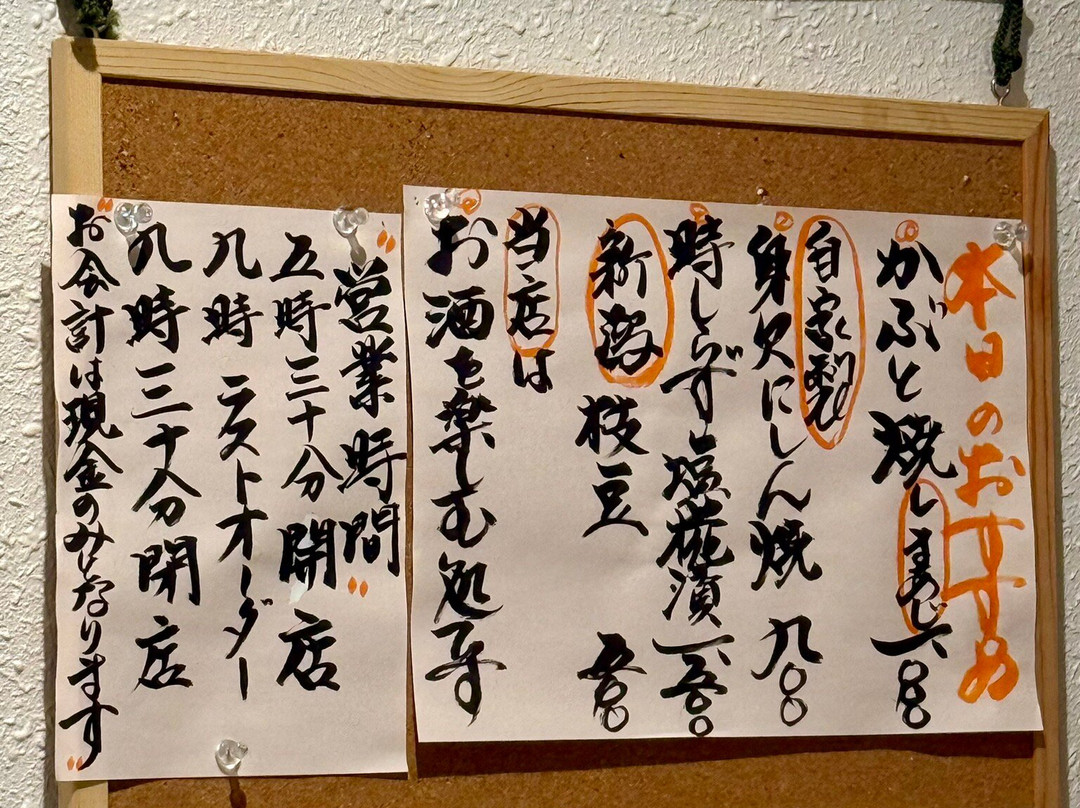 本日のおすすめ
かぶと焼 しまあじ
自家製
身欠にしん焼 九〇〇
時しらず塩糀漬 一、五〇〇
新潟 枝豆 五〇〇
当店は
お酒を楽しむ処です
"営業時間"
五時三十分 開店
九時 ラストオーダー
九時三十分 閉店
"お会計は現金のみとなります"